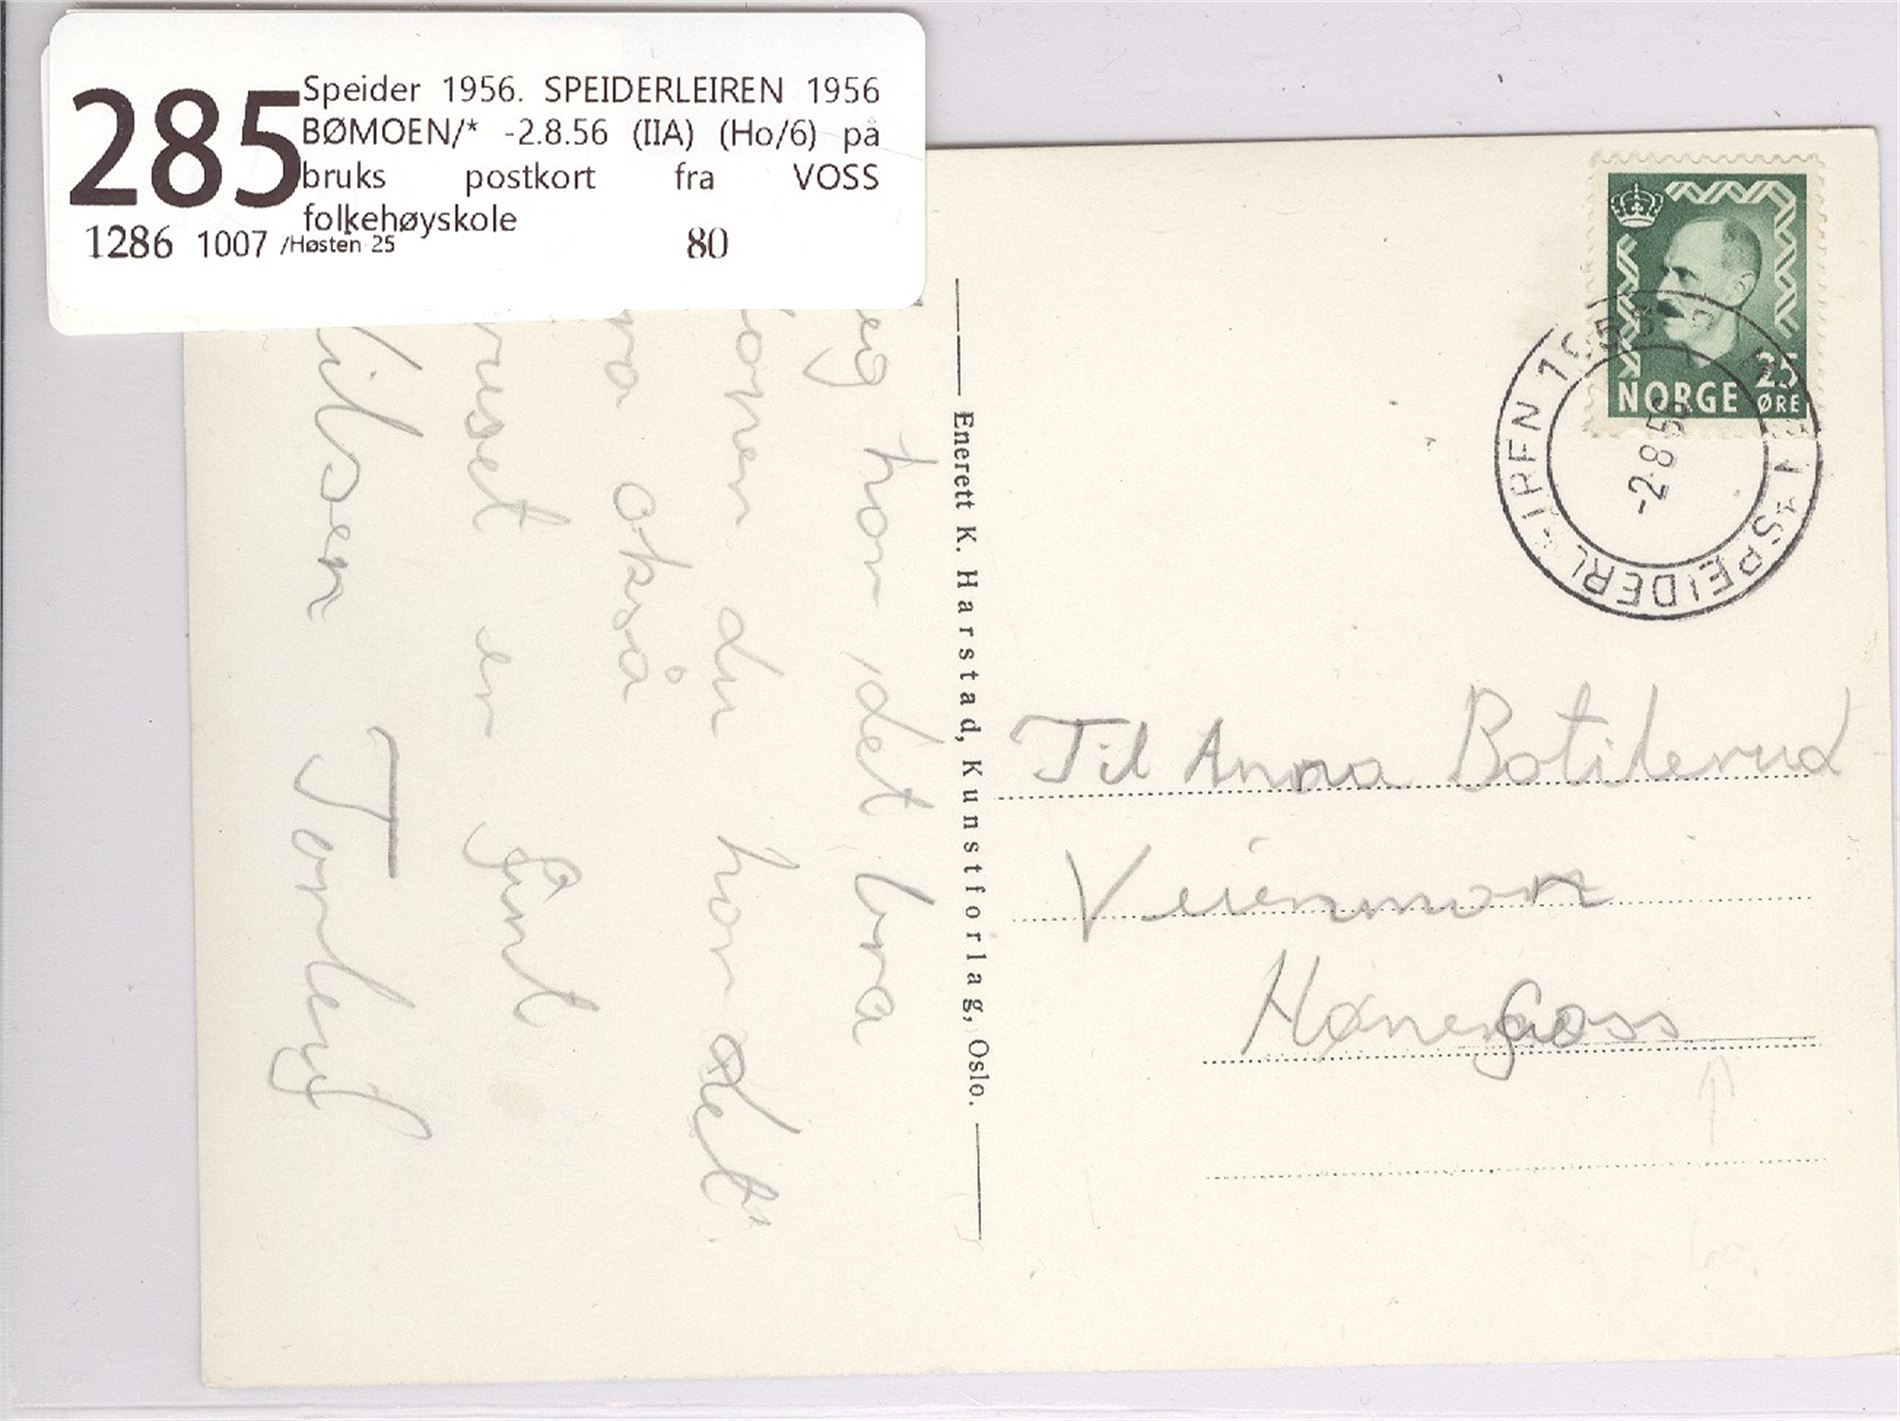 285
Speider 1956. SPEIDERLEIREN 1956
BØMOEN/* -2.8.56 (IIA) (Ho/6) på
bruks postkort fra VOSS
folkehøyskole
1286 1007 /Høsten 25 80
eg har det bra
du har det
også
er fint
Torleif
Enerett K. Harstad, Kunstforlag, Oslo.
NORGE 25 ØRE
-2.8.56
Til Anna
Veienmoen
Hønefoss